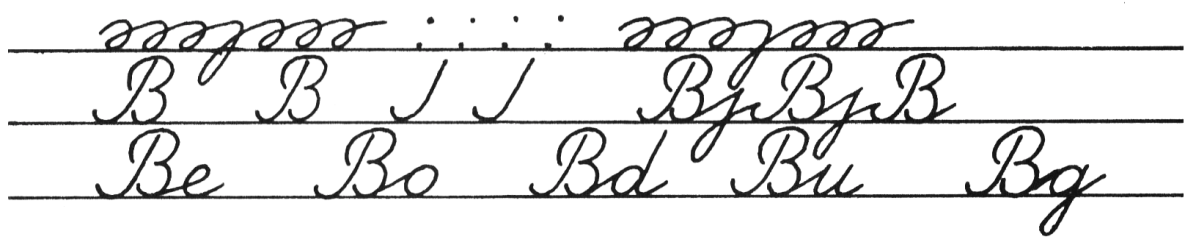 B B J J BjBjB
Be Bo Bd Bu Bg